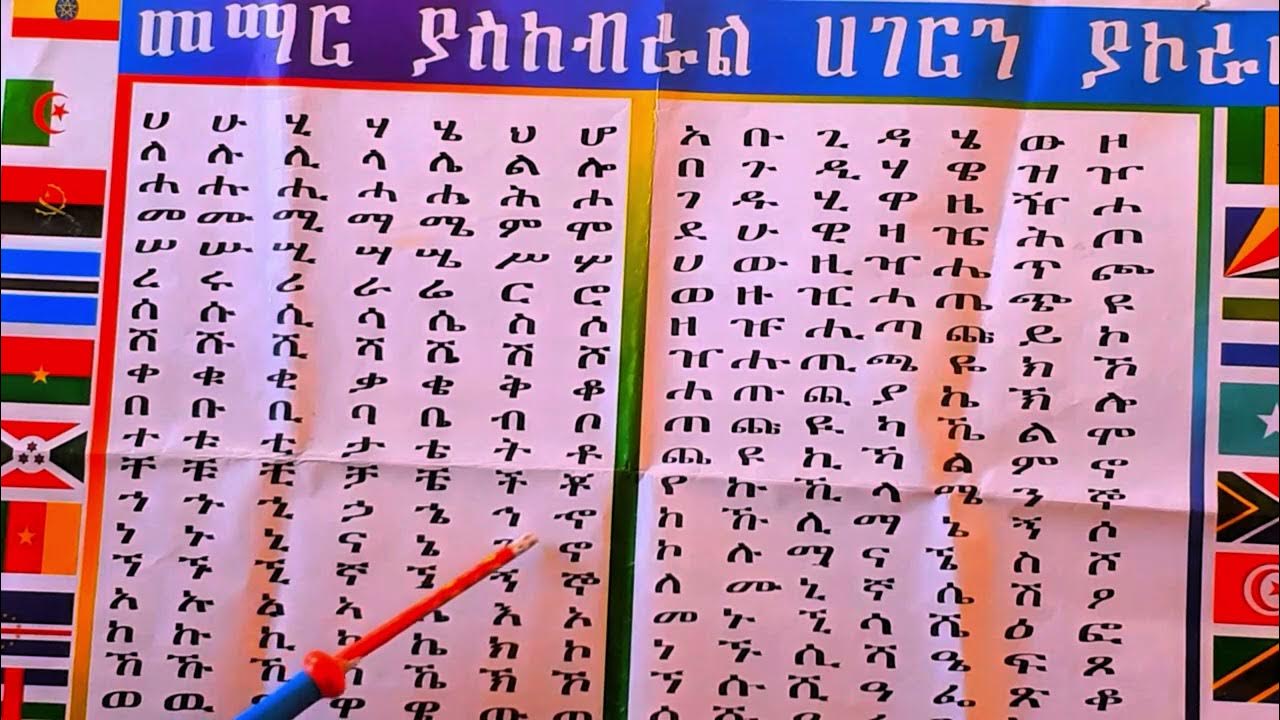 መማር ያስከብራል ሀገርን ያኮራ
ሀ ሁ ሂ ሃ ሄ ህ ሆ
ለ ሉ ሊ ላ ሌ ል ሎ
ሐ ሑ ሒ ሓ ሔ ሕ ሐ
መ ሙ ሚ ማ ሜ ም ሞ
ሠ ሡ ሢ ሣ ሤ ሥ ሦ
ረ ሩ ሪ ራ ሬ ር ሮ
ሰ ሱ ሲ ሳ ሴ ስ ሶ
ሸ ሹ ሺ ሻ ሼ ሽ ሾ
ቀ ቁ ቂ ቃ ቄ ቅ ቆ
በ ቡ ቢ ባ ቤ ብ ቦ
ተ ቱ ቲ ታ ቴ ት ቶ
ቸ ቹ ቺ ቻ ቼ ች ቾ
ኀ ኁ ኂ ኃ ኄ ኅ ኆ
ነ ኑ ኒ ና ኔ ኖ
ኘ ኙ ኚ ኛ ኜ ኝ ኞ
አ ኡ ኢ ኣ እ ኦ
ከ ኩ ኪ ኬ ክ ኮ
ኸ ኹ ኺ ኼ ኽ ኾ
ወ ዉ ዋ ዌ
አ ቡ ጊ ዳ ሄ ው ዞ
በ ጉ ዲ ሃ ዌ ዝ ዦ
ገ ዱ ሂ ዋ ዜ ዥ ሐ
ደ ሁ ዊ ዛ ዤ ሕ ጦ
ሀ ው ዚ ዣ ሔ ጥ ጮ
ወ ዙ ዢ ሓ ጤ ጭ ዩ
ዘ ዡ ሒ ጣ ጬ ይ ኮ
ዠ ሑ ጢ ጫ ዬ ክ ኾ
ሐ ጡ ጪ ያ ኬ ኽ ሎ
ጠ ጩ ዪ ካ ኼ ል ሞ
ጨ ዩ ኪ ኻ ል ም ኖ
የ ኩ ኺ ላ ሜ ን ኞ
ከ ኹ ሊ ማ ኔ ኝ ሶ
ኮ ሉ ማ ና ኜ ስ ሾ
ለ ሙ ኒ ኛ ሴ ሽ ዖ
መ ኑ ኚ ሳ ሼ ዕ ፎ
ነ ኙ ሲ ሻ ዔ ፍ ጾ
ኘ ሱ ሺ ዓ ፌ ጽ ቆ